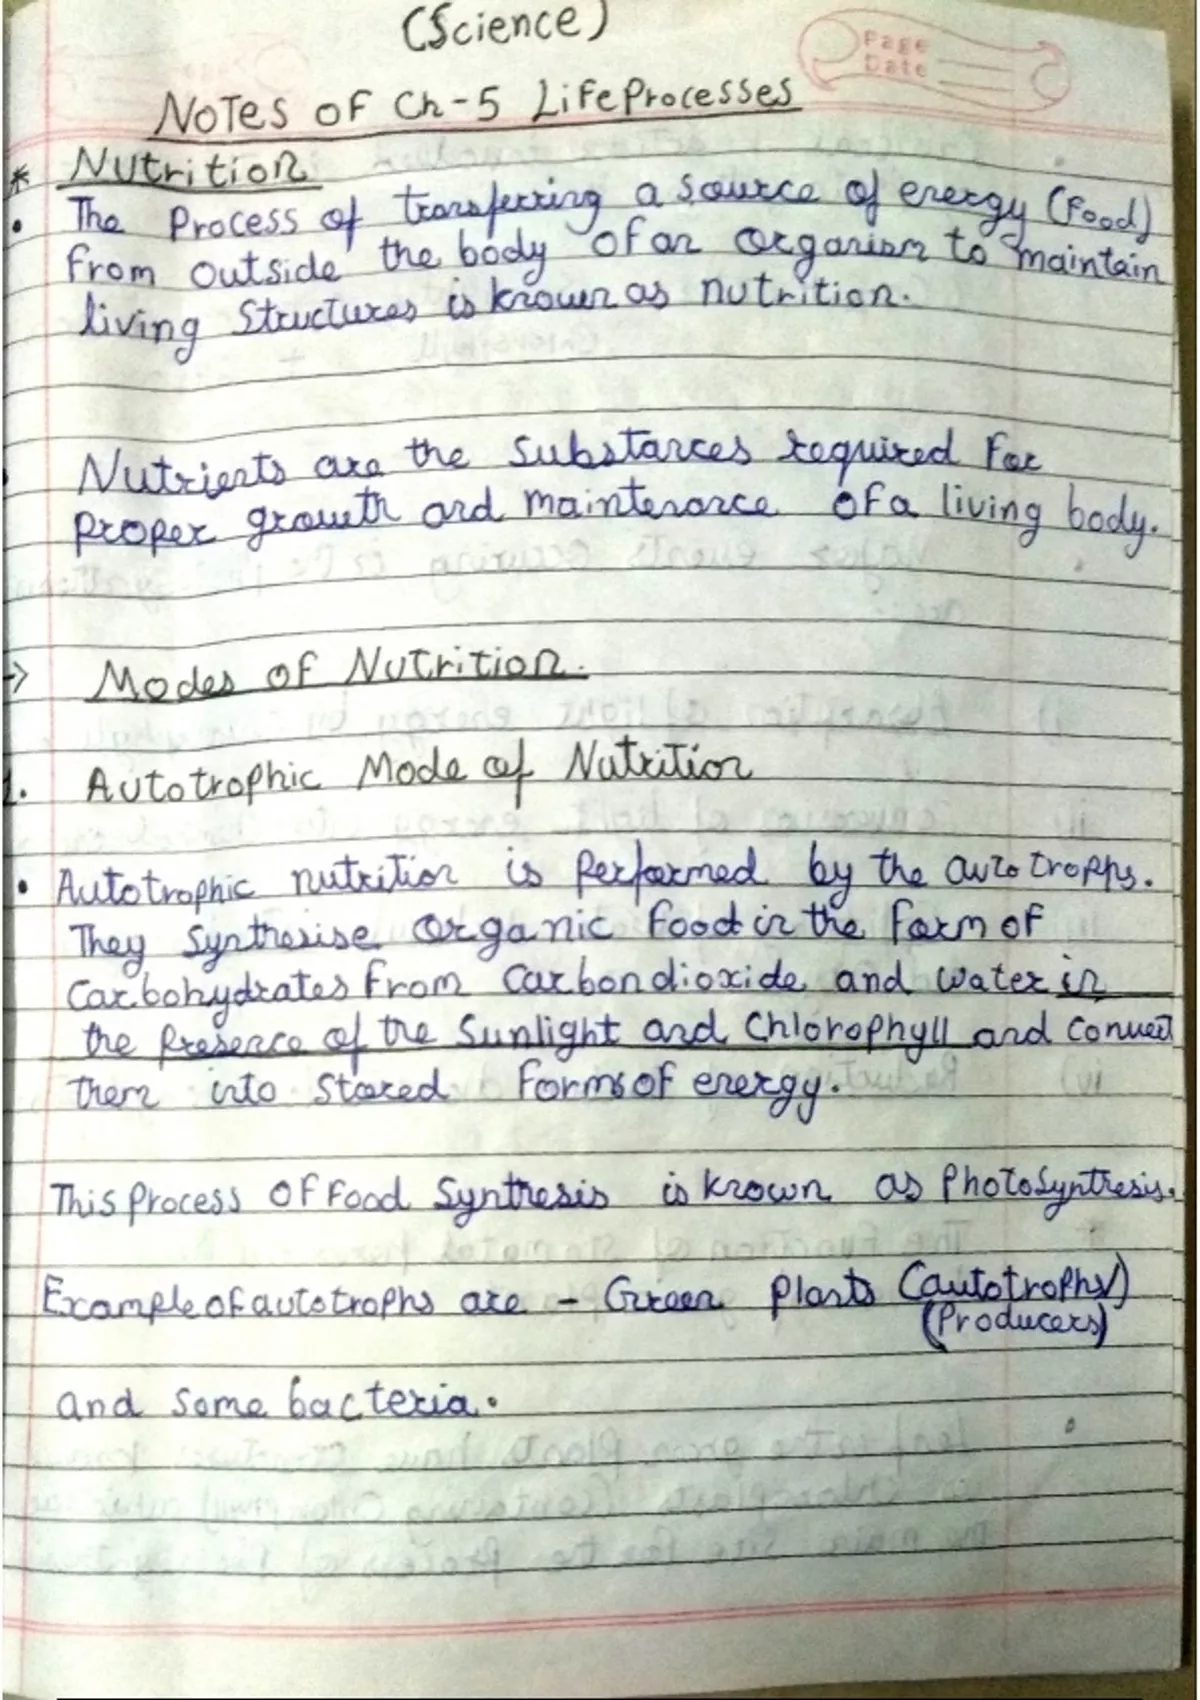 (Science)
Page
Date
Notes of Ch-5 Life Processes
* Nutrition
• The Process of transferring a source of energy (Food)
from outside the body of an organism to maintain
living Structures is known as nutrition.
Nutrients are the Substances required For
proper growth and maintenance of a living body.
→ Modes of Nutrition.
1. Autotrophic Mode of Nutrition
• Autotrophic nutrition is Performed by the autotropps.
They Synthesise organic Food in the Form of
Carbohydrates From Carbondioxide and water in
the Presence of the Sunlight and Chlorophyll and Convert
them into Stored Forms of energy.
This Process of Food Synthesis is known as Photosynthesis.
Example of autotrophs are - Green Plants (autotrophs)
(Producers)
and Some bacteria.